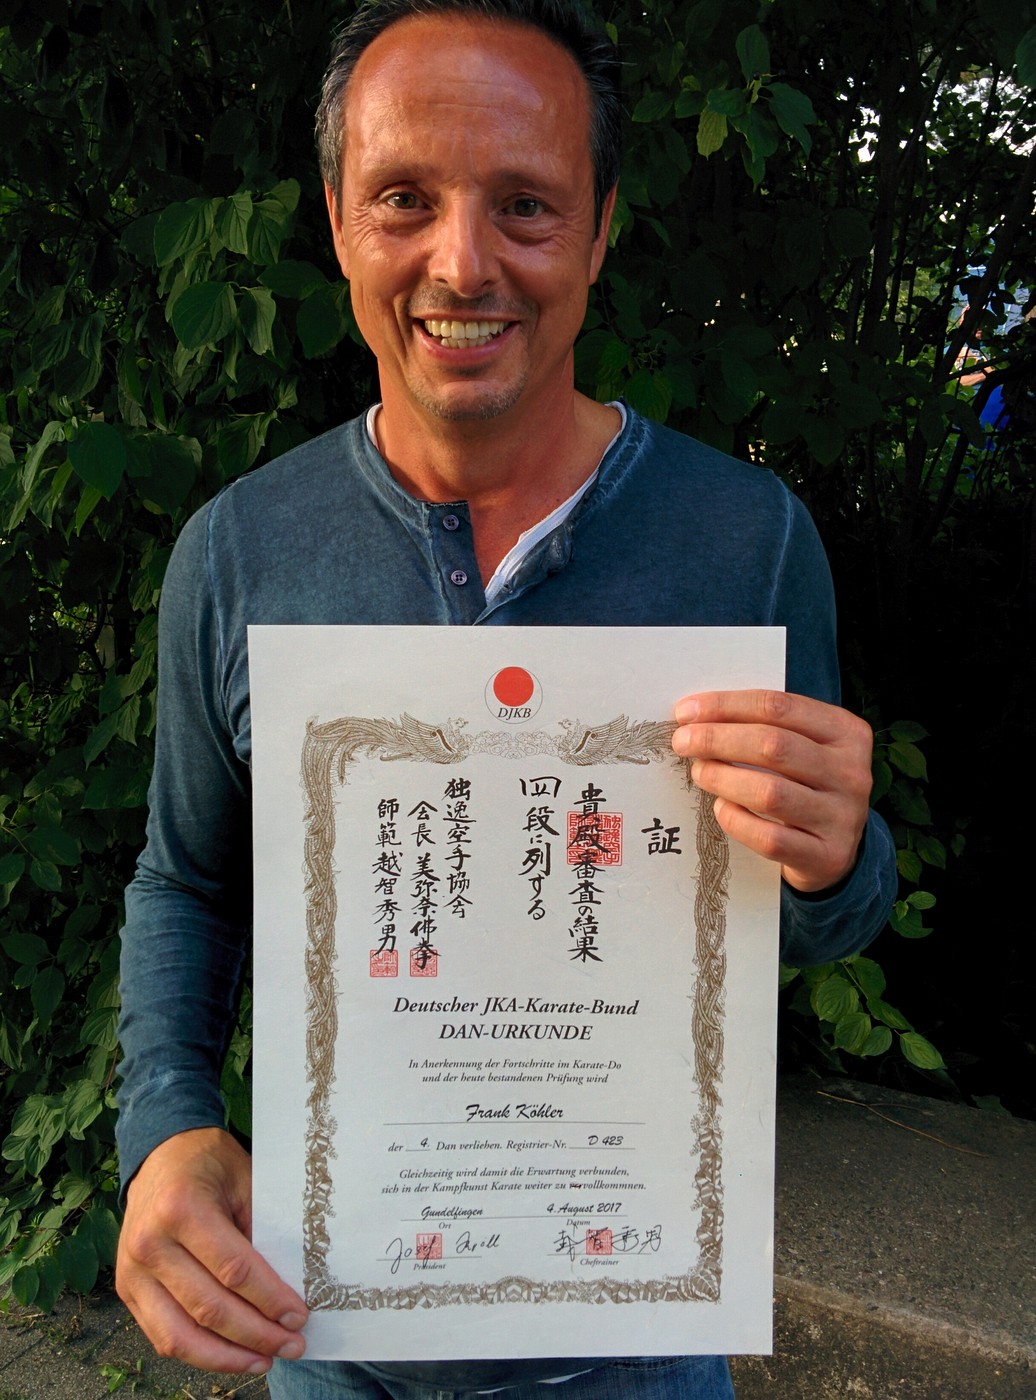 DJKB
証
貴殿審査の結果
四段に列する
独逸空手協会
会長 美弥奈佛拳
師範 越智秀男
Deutscher JKA-Karate-Bund
DAN-URKUNDE
In Anerkennung der Fortschritte im Karate-Do
und der heute bestandenen Prüfung wird
Frank Köhler
der 4. Dan verliehen. Registrier-Nr. D 423
Gleichzeitig wird damit die Erwartung verbunden,
sich in der Kampfkunst Karate weiter zu vervollkommnen.
Gundelfingen 4. August 2017
Ort Datum
Präsident Cheftrainer